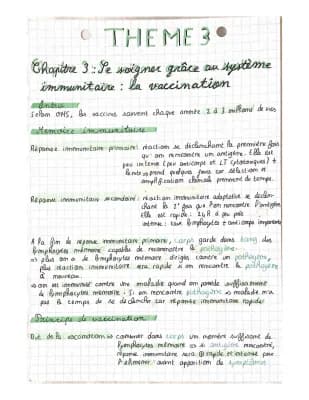 THEME 3
Chapitre 3 : Se soigner grâce au système
immunitaire : la vaccination
Intro
Selon OMS, les vaccins sauvent chaque année 2 à 3 millions de vies
Mémoire immunitaire
Réponse immunitaire primaire : réaction se déclenchant la première fois
qu'on rencontre un antigène. Elle est
peu intense (peu anticorps et LT cytotoxiques) +
lente → prend quelques jours car sélection et
amplification clonale prennent du temps.
Réponse immunitaire secondaire : réaction immunitaire adaptative se déclen-
chant la 2e fois que l'on rencontre l'antigène.
Elle est rapide : 24h à peu près
intense : taux lymphocytes + anticorps importants
À la fin de réponse immunitaire primaire, corps garde dans sang des
lymphocytes mémoire capables de reconnaître le pathogène.
⇒ plus on a de lymphocytes mémoire dirigés contre un pathogène,
plus réaction immunitaire sera rapide si on rencontre le pathogène
à nouveau.
⇒ on est immunisé contre une maladie quand on possède suffisamment
de lymphocytes mémoire : si on rencontre pathogène ⇒ maladie n'a
pas le temps de se déclencher car réponse immunitaire rapide
Principe de vaccination
But de la vaccination ⇒ amener dans corps un nombre suffisant de
lymphocytes mémoire ⇒ si antigène rencontré,
réponse immunitaire sera rapide et intense pour
l'éliminer avant apparition de symptômes